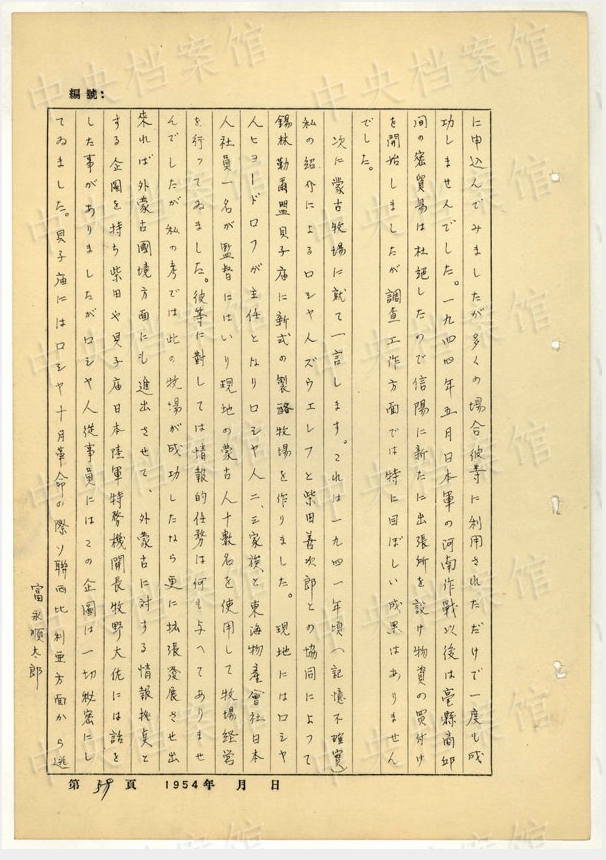 編號:
に申込んでみましたが多くの場合彼等に利用されただけで一度も成
功しませんでした。一九四四年五月日本軍の河南作戦以後は亳縣商邱
間の密貿易は杜絶したので信陽に新たに出張所を設け物資の買付け
を開始しましたが調査工作方面では特に目ぼしい成果はありません
でした。
次に蒙古牧場に就て一言します。これは一九四一年頃(記憶不確實)
私の紹介によるロシヤ人ズウエレフと柴田善次郎との協同によつて
錫林勒爾盟貝子庙に新式の製酪牧場を作りました。現地にはロシヤ
人ヒョードロフが主任となりロシヤ人二、三家族と東海物産會社日本
人社員一名が監督にはいり現地の蒙古人十数名を使用して牧場経営
を行つてゐました。彼等に対しては情報的任務は何も与へてありませ
んでしたが私の考では此の牧場が成功したなら更に拡張發展させ出
來れば外蒙古國境方面にも進出させて、外蒙古に対する情報拠点と
する企圖を持ち柴田や貝子庙日本陸軍特務機関長牧野大佐には話を
した事がありましたがロシヤ人從事員にはこの企圖は一切秘密にし
てゐました。貝子庙にはロシヤ十月革命の際ソ聯西比利亜方面から逃
富永順太郎
第 頁 1954年 月 日
中央档案馆